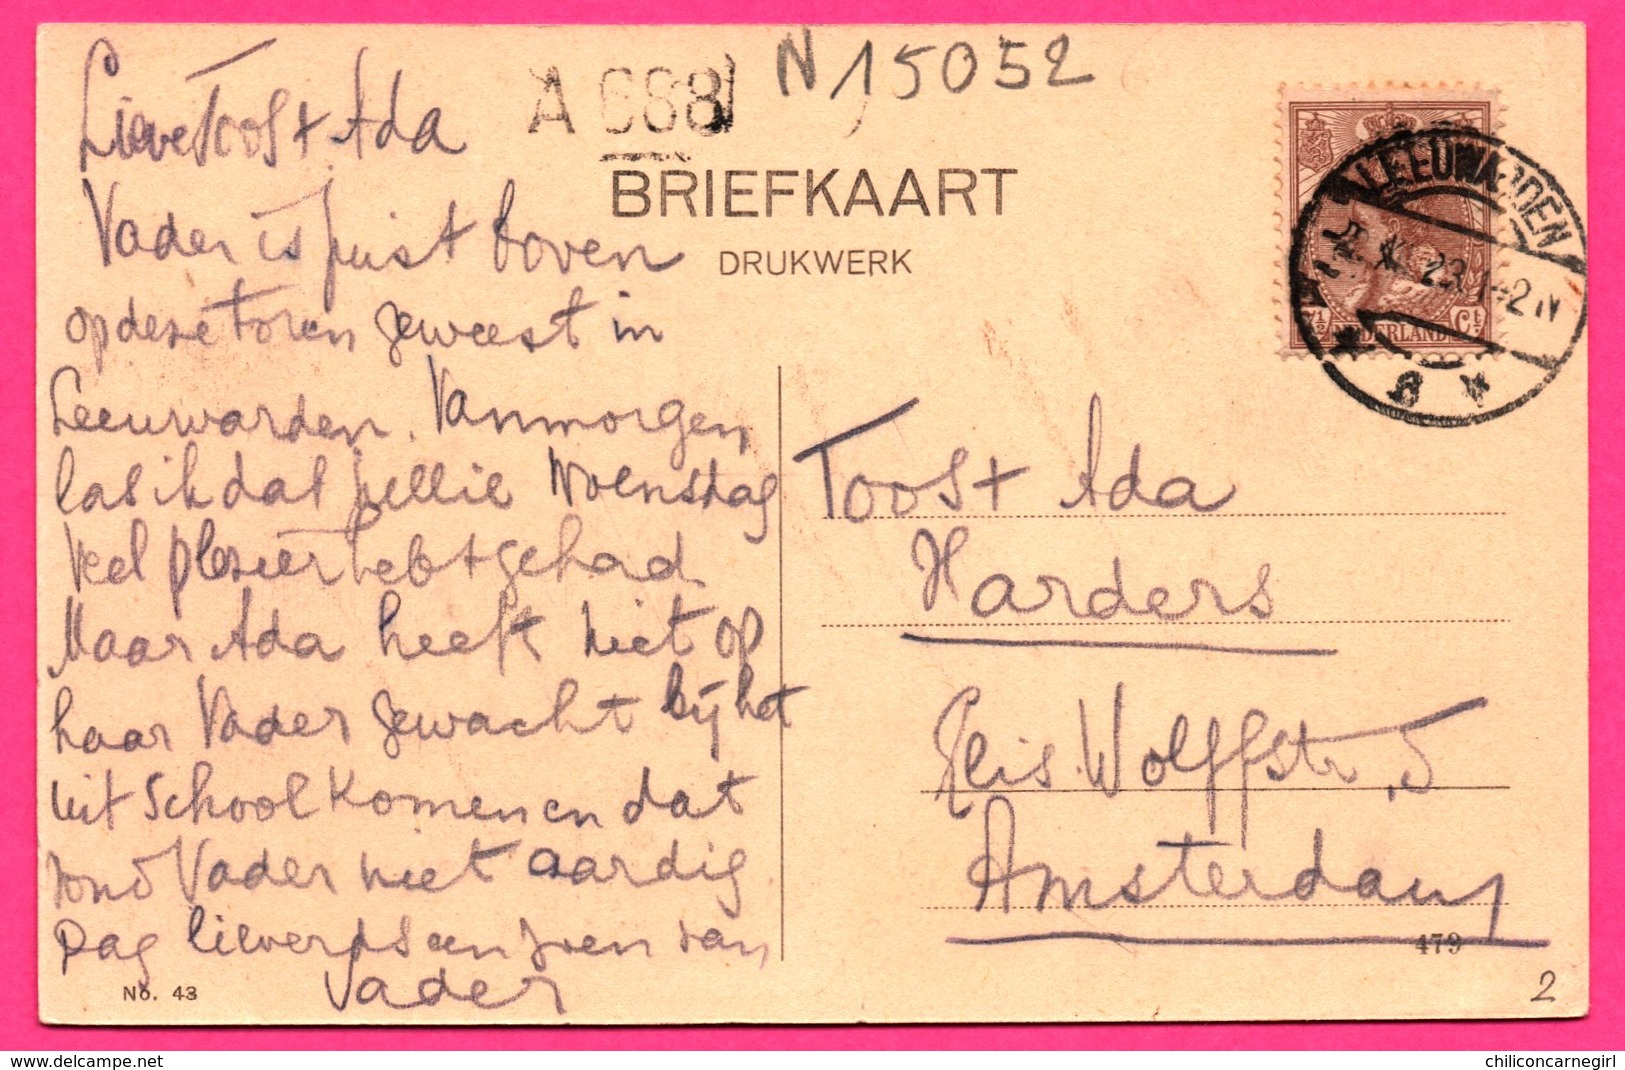 A 688
N 15052
BRIEFKAART
DRUKWERK
Lieve Toos + Ada
Vader is juist boven
op deze toren geweest in
Leeuwarden. Vanmorgen
las ik dat jullie Woensdag
veel plezier hebt gehad
Maar Ada heeft niet op
haar Vader gewacht bij het
uit school komen en dat
vond Vader niet aardig
Dag lieverds een zoen van
Vader
No. 43
LEEUWARDEN
23
2 N
7½ NEDERLAND Ct
8
Toos + Ada
Harders
Wolffstr. 5
Amsterdam
479
2
www.delcampe.net
chiliconcarnegirl